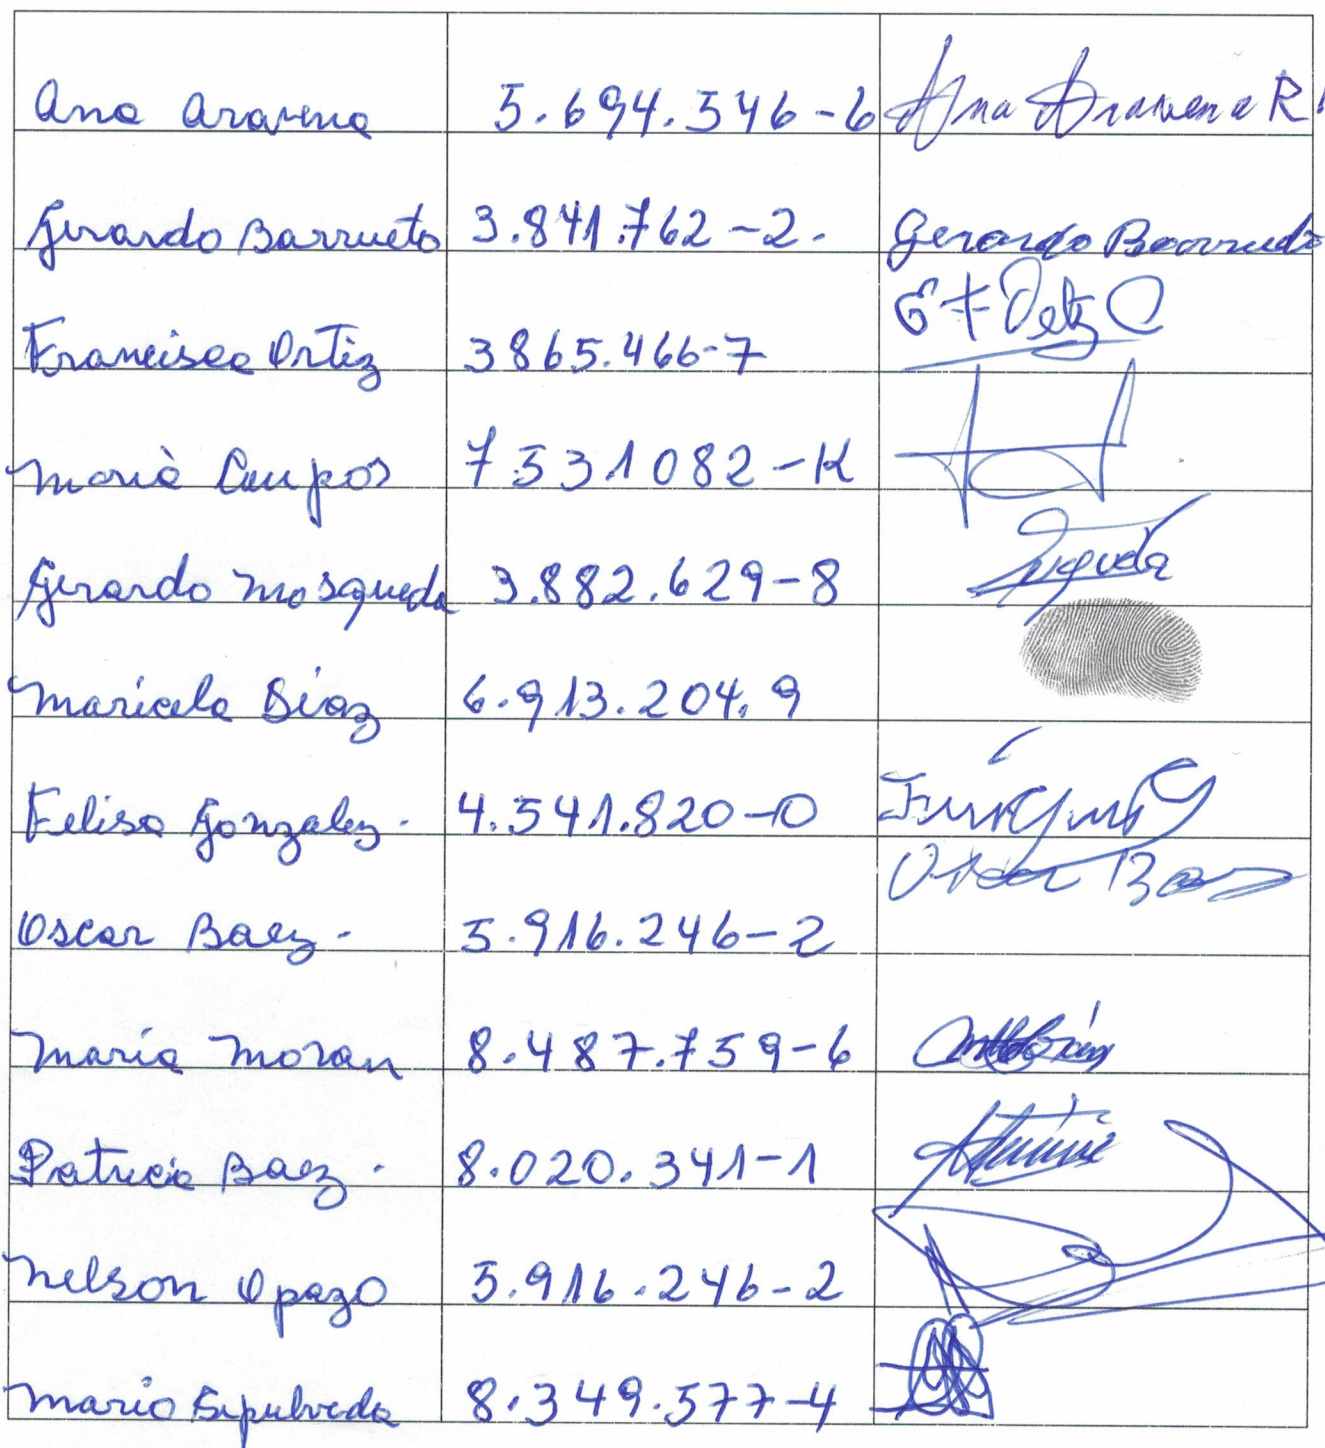 Ana Aravena 5.694.546-6 Ana Aravena R
Gerardo Barrueto 3.841.762-2. Gerardo Barrueto
Francisca Ortiz 3865.466-7
Maria Campos 7.531082-K
Gerardo Mosqueda 3.882.629-8
Maricela Diaz 6.913.204.9
Felisa Gonzalez. 4.541.820-0
Oscar Baez
Oscar Baez. 5.916.246-2
Maria Moran 8.487.759-6
Patricia Baez. 8.020.341-1
Nelson Opazo 5.916.246-2
Mario Sepulveda 8.349.577-4